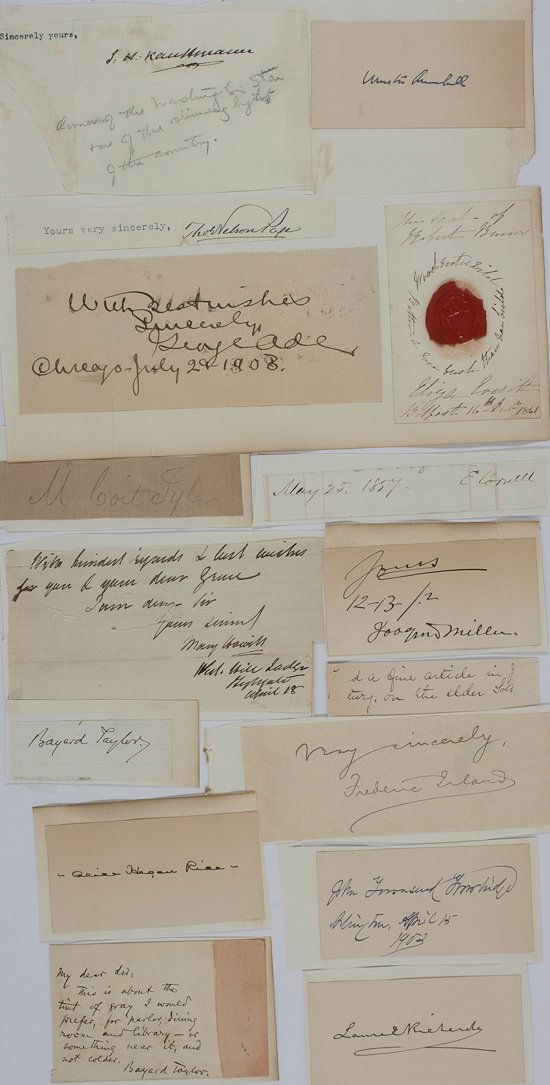 Sincerely yours,
S. H. Kauffmann
Owner of the Washington Star
one of the shining lights
of the country.
Winston Churchill
Yours very sincerely, Tho Nelson Page
With best wishes
Sincerely,
George Ade
Chicago July 28 1903.
The Seal of
Robert
Eliza
Belfast 16th Decr 1861
M Coit Tyle
May 25. 1857 E Cornell
With kindest regards & best wishes
for you & your dear
I am dear Sir
Yours
Mary Howitt
West Hill Lodge
Highgate
April 18
Yours
12-13-/2
Joaquin Miller.
d a fine article in
tury. on the elder
Bayard Taylor.
Very sincerely,
Frederic
- Alice Hegan Rice -
John Townsend Trowbridge
Arlington, April 15
1903
My dear Sir,
This is about the
tint of gray I would
prefer, for parlor, dining
room and library – or
something near it, and
not colder.
Bayard Taylor.
Laura E Richards